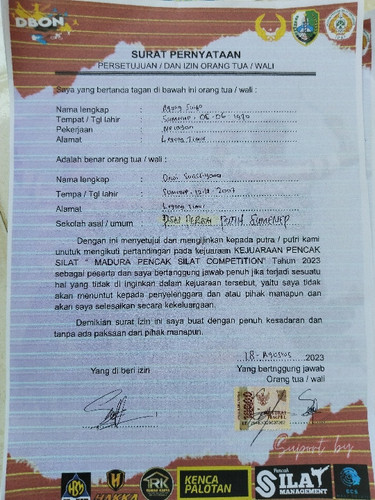 DBON
SURAT PERNYATAAN
PERSETUJUAN / DAN IZIN ORANG TUA / WALI
Saya yang bertanda tagan di bawah ini orang tua / wali :
Nama lengkap :
Tempat / Tgl lahir : Sumenep, 06-06-1970
Pekerjaan : Nelayan
Alamat : Legung Timur
Adalah benar orang tua / wali :
Nama lengkap : Dewi
Tempa / Tgl lahir : Sumenep, 2007
Alamat : Legung Timur
Sekolah asal / umum : PSN PERISAI PUTIH SUMENEP
Dengan ini menyetujui dan mengijinkan kepada putra / putri kami
unutuk mengikuti pertandingan pada kejuaraan KEJUARAAN PENCAK
SILAT " MADURA PENCAK SILAT COMPETITION" Tahun 2023
sebagai peserta dan saya bertanggung jawab penuh jika terjadi sesuatu
hal yang tidak di inginkan dalam kejuaraan tersebut, yaitu saya tidak
akan menuntut kepada penyelenggara dan atau pihak manapun dan
akan saya selesaikan secara kekeluargaan.
Demikian surat izin ini saya buat dengan penuh kesadaran dan
tanpa ada paksaan dari pihak manapun.
18-Agustus 2023
Yang di beri izin
Yang bertnggung jawab
Orang tua / wali
Suport by
HAKKA
TRK
KENCA
PALOTAN
Pencak
SILAT
MANAGEMENT